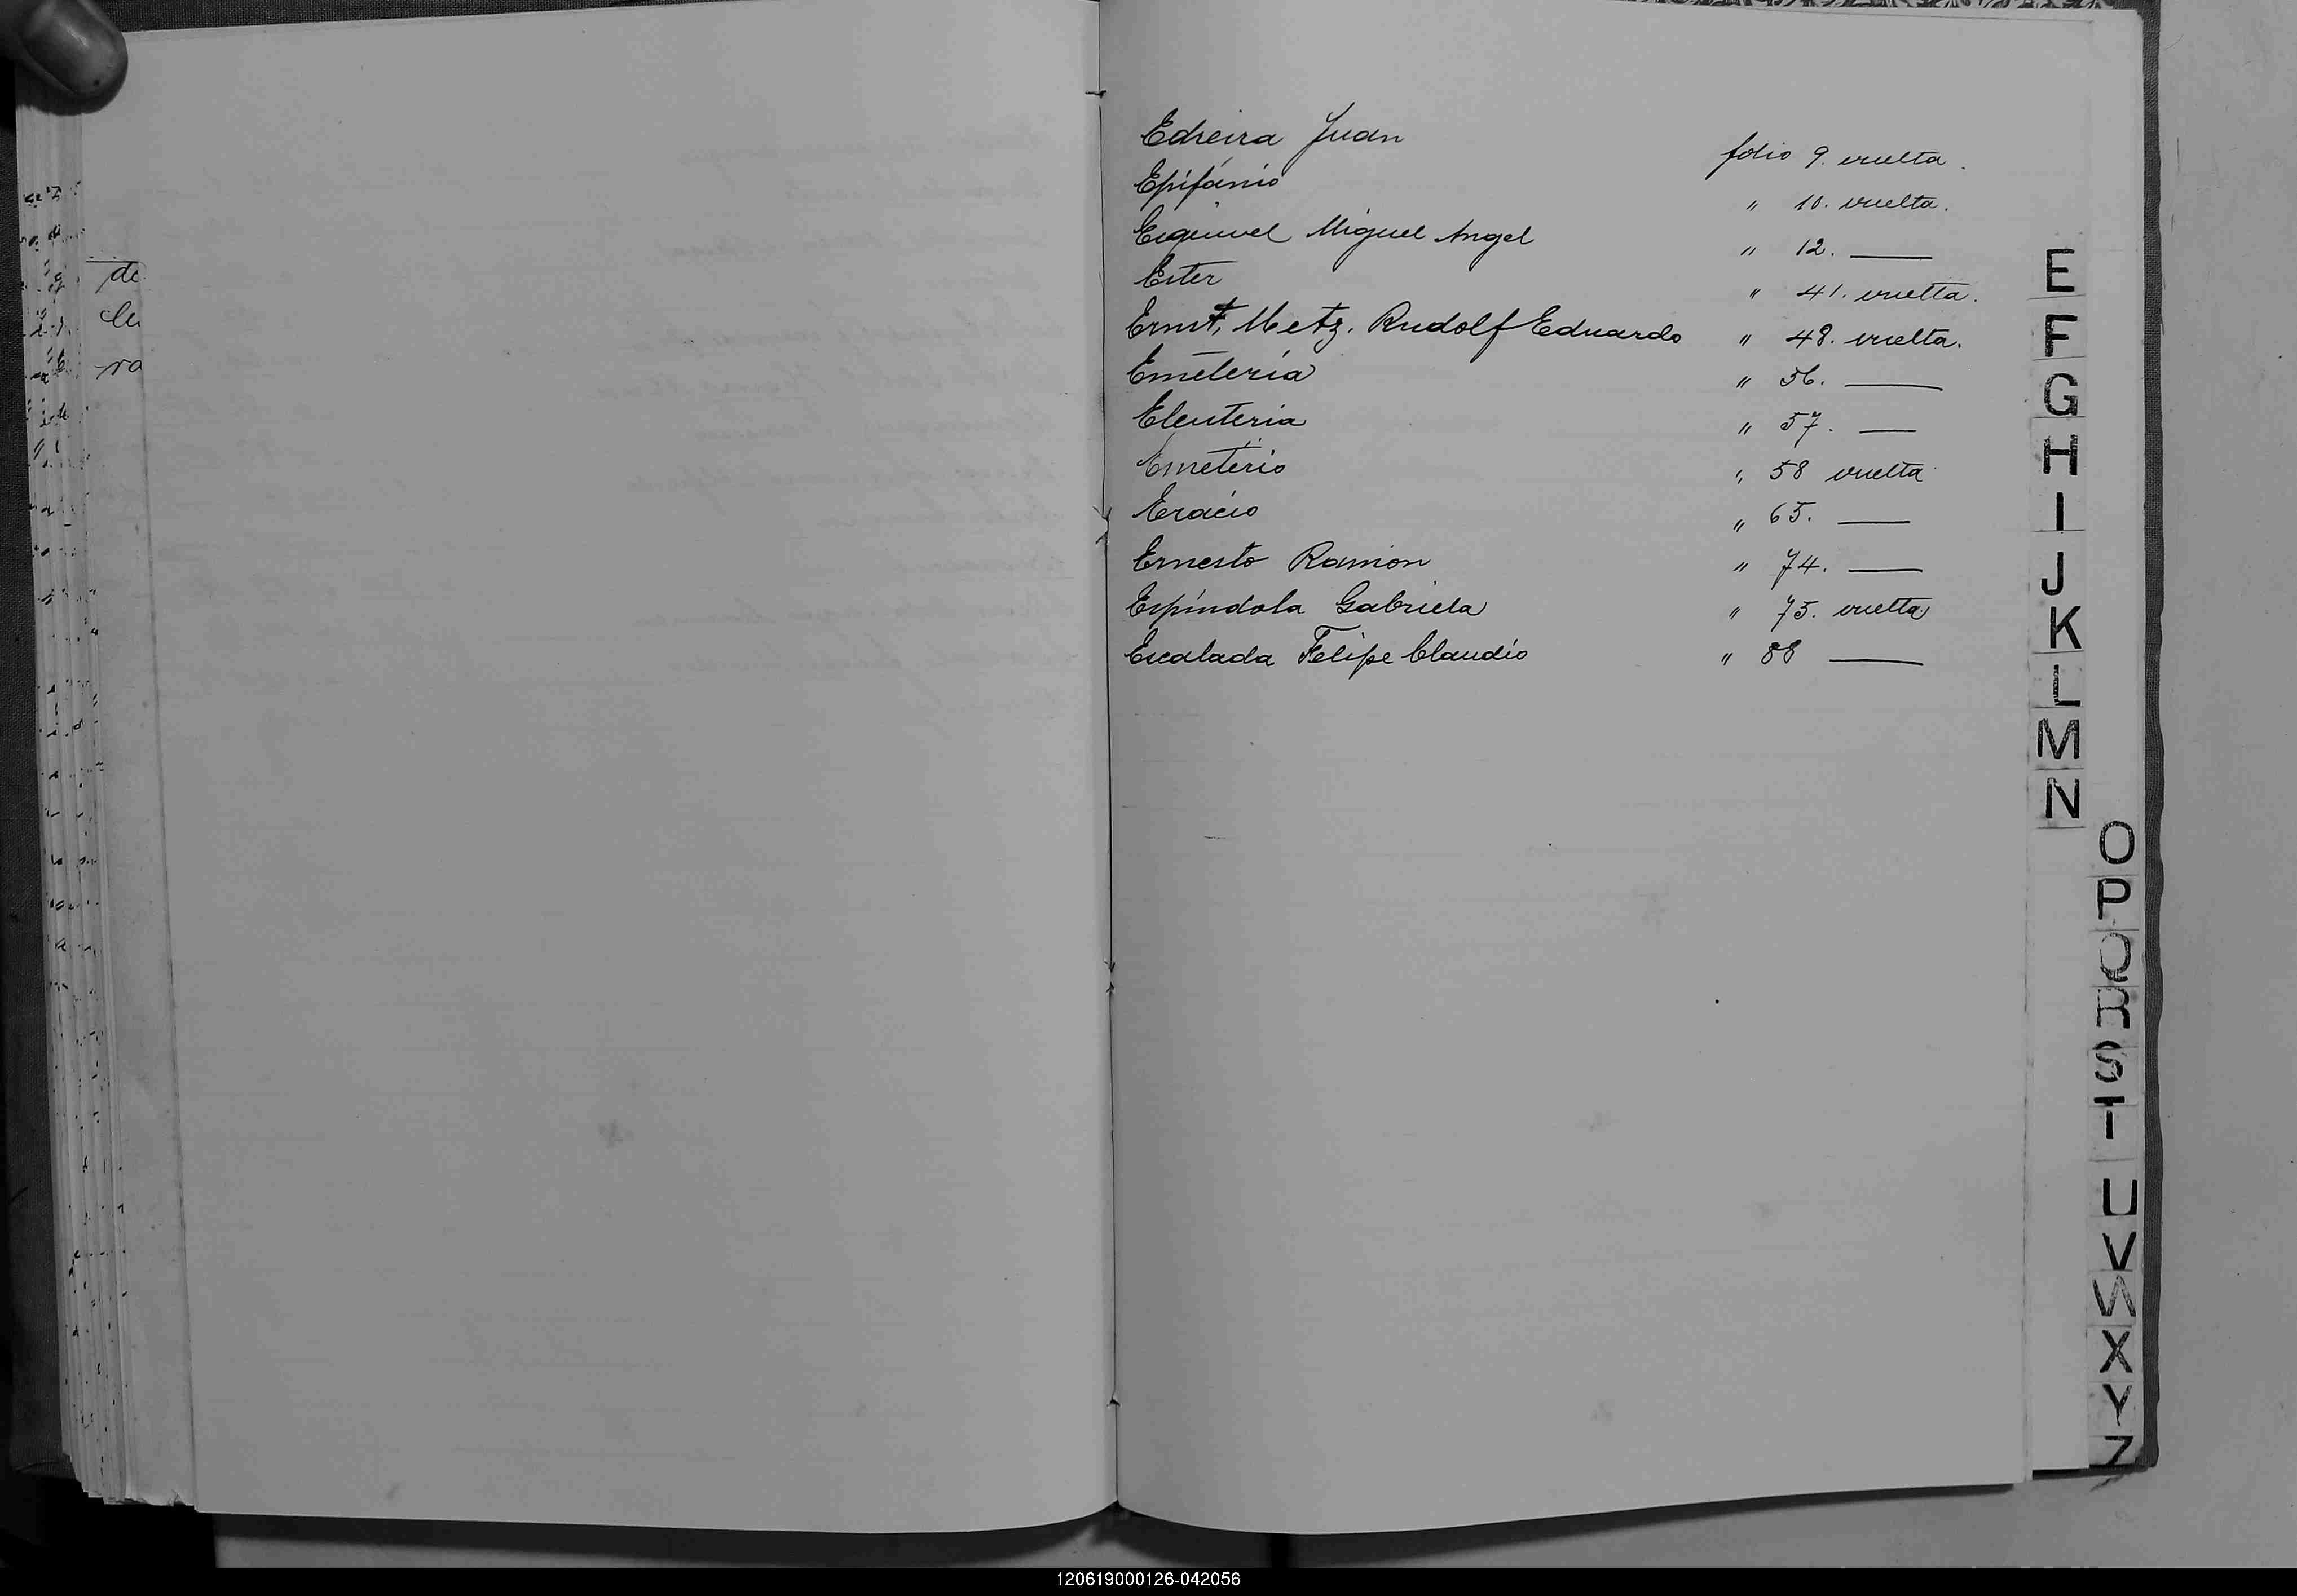 de
Edreira Juan folio 9. vuelta.
Epifánio " 10. vuelta.
Esquivel Miguel Angel " 12. ———
Ester " 41. vuelta.
Ernst, Metz. Rudolf Eduardo " 48. vuelta.
Emeteria " 56. ———
Eleuteria " 57. ——
Emeterio " 58 vuelta
Erácio " 65. ———
Ernesto Ramon " 74. ———
Espíndola Gabriela " 75. vuelta
Escalada Felipe Claudio " 88 ———
E
F
G
H
I
J
K
L
M
N
O
P
Q
R
S
T
U
V
W
X
Y
Z
120619000126-042056